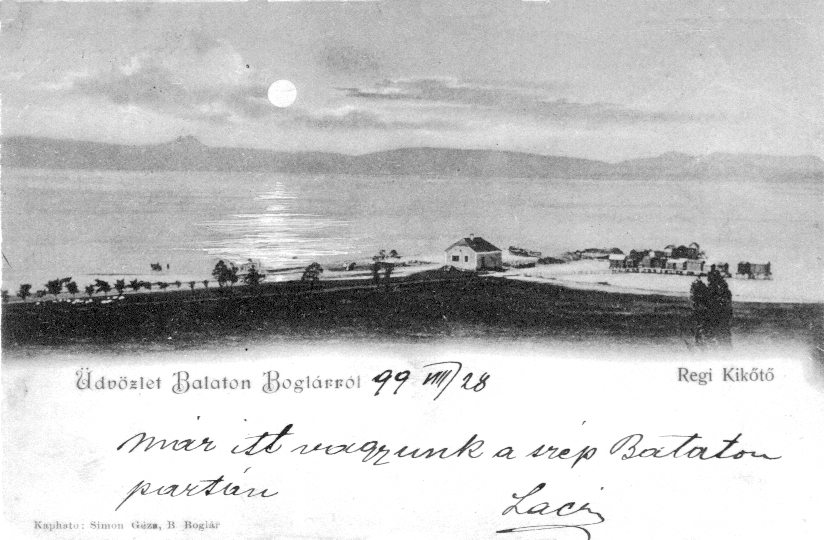 Üdvözlet Balaton Boglárról 99 VIII/28
Regi Kikőtő
már itt vagyunk a szép Balaton
partán
Laci
Kapható: Simon Géza, B. Boglár